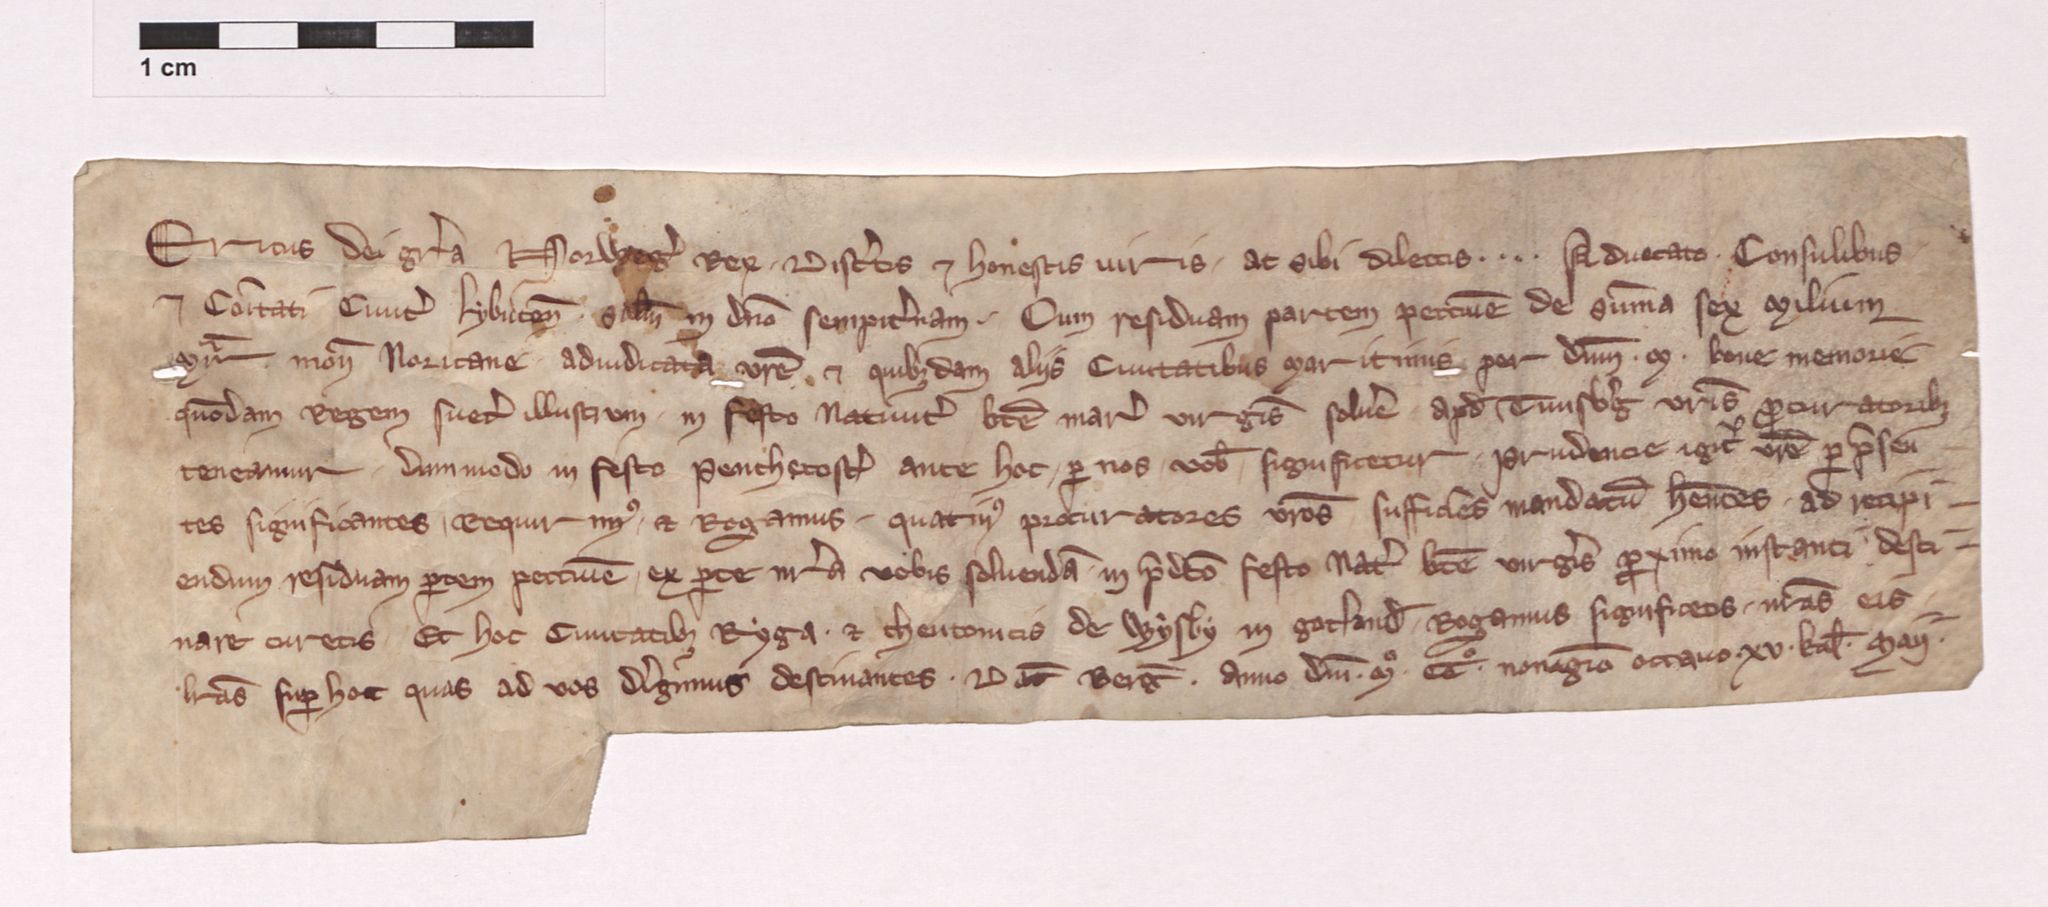 1 cm
Ericus dei gr̄a Norweg̅ Rex. Discr̄tis ⁊ honestis uiris. ac sibi dilectis. . . . Aduocato. Consulibus.
⁊ Cōitati Ciuit̄ lybicen̄. salt̄m in dn̄o sempit̄nam. Cum residuam partem peccuniē de sūma sex miliūm
mr̄. mon̄ Noricane. adiudicata vrē. ⁊ quibꝫdam alijs Ciuitatibus maritimis per dn̄m. M. bone memorie
quōdam Regem suec̄ illustrem. in festo Natiuit̄ bt̄e mar̄ virgīs soluē. apd̄ Tunsb̄g vrīs ꝓcuratoribꝫ
teneamur. dummodo in festo penthecost̄ ante hoc. ꝑ nos. vob̄. significetur. prudencie igit̄ vrē ꝑ p̄sen
tes significantes, Requirimꝰ. ⁊ Rogamus. quatinꝰ procuratores vrōs sufficiēs mandatū hēntes. ad recipi-
endum residuam ꝑtem peccuniē, ex ꝑte nr̄a vobis soluendā. in p̄dc̄o festo Nat̄ bt̄e virgīs ꝓximo instanti desti-
nare curetis. Et hoc Ciuitatibꝫ Ryga. ⁊ theutonicis de Wysby in gotland̄. Rogamus significetis. nr̄as eis
lrās suꝑ hoc quas ad vos dirīgimus destinantes. Dat̄ Berg̅. anno dn̄i. Mº. CCº. nonagēo octauo. xv. kal̄. Maij.